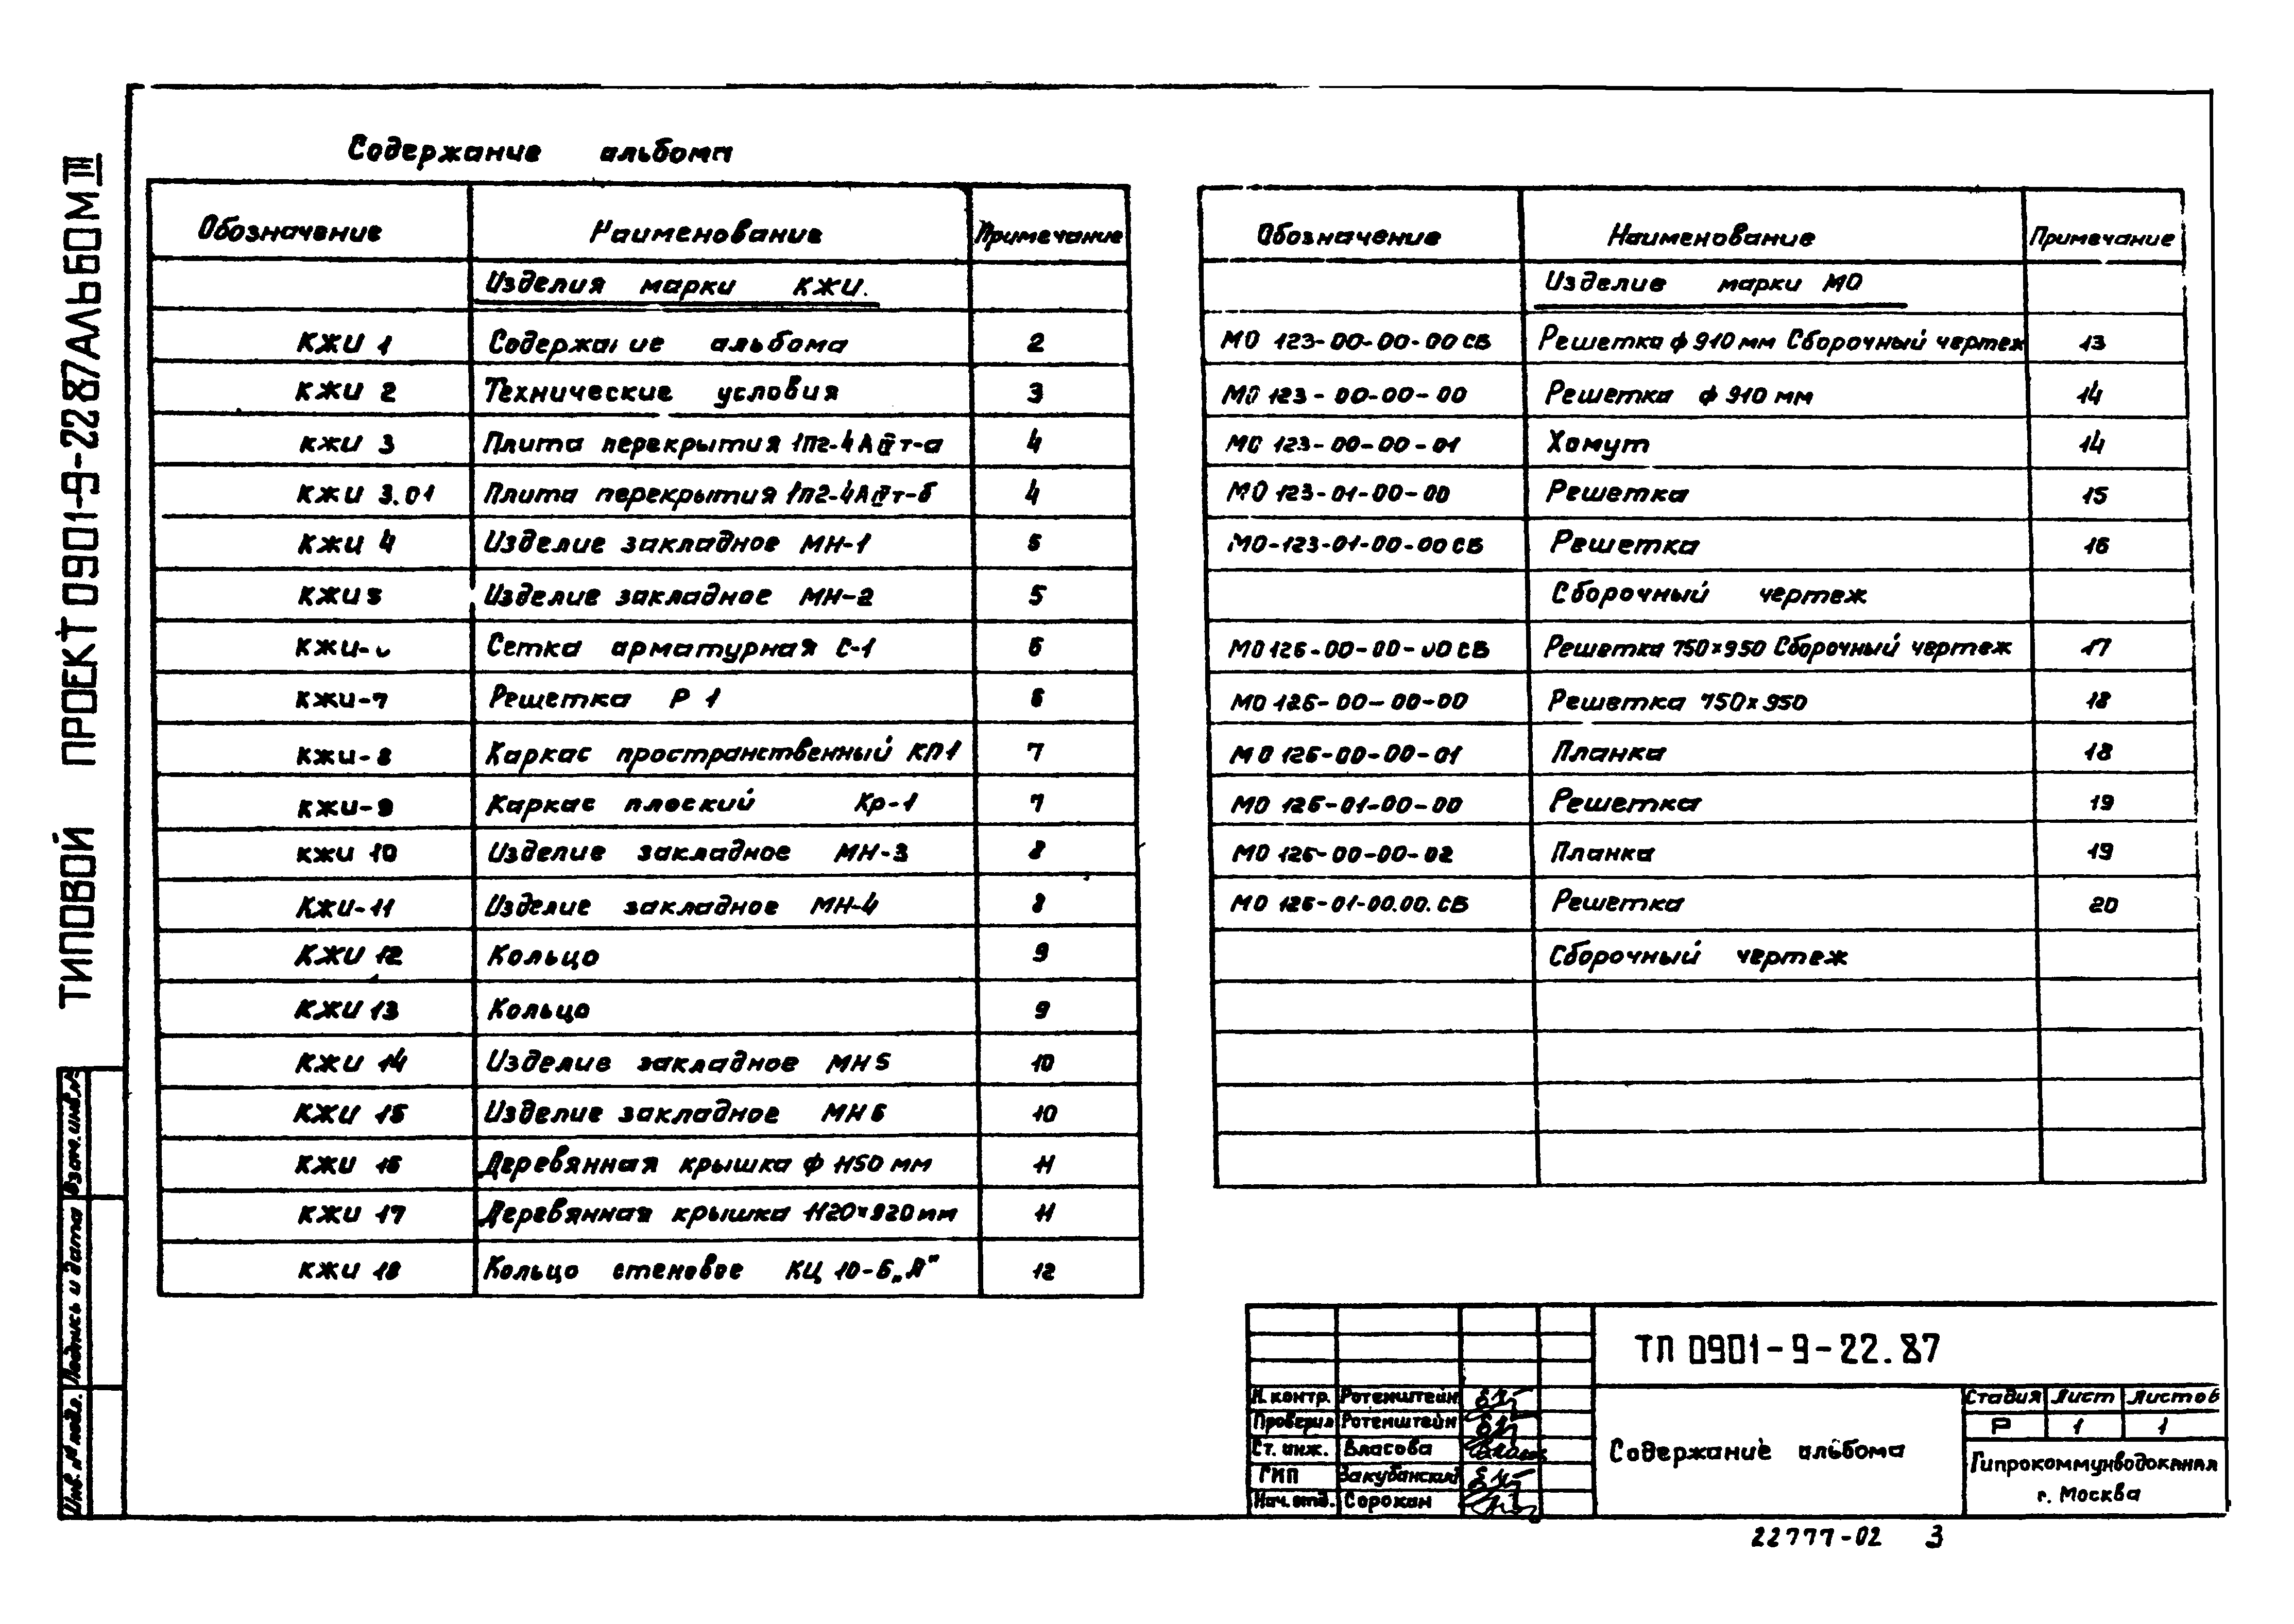 ТИПОВОЙ ПРОЕКТ 0901-9-22 87 АЛЬБОМ III
Содержание альбома
Обозначение Наименование Примечание
Изделия марки КЖИ.
КЖИ 1 Содержание альбома 2
КЖИ 2 Технические условия 3
КЖИ 3 Плита перекрытия 1ПГ-4АIVт-а 4
КЖИ 3.01 Плита перекрытия 1ПГ-4АIVт-б 4
КЖИ 4 Изделие закладное МН-1 5
КЖИ 5 Изделие закладное МН-2 5
КЖИ- Сетка арматурная С-1 6
КЖИ-7 Решетка Р 1 6
КЖИ-8 Каркас пространственный КП1 7
КЖИ-9 Каркас плоский Кр-1 7
КЖИ 10 Изделие закладное МН-3 8
КЖИ-11 Изделие закладное МН-4 8
КЖИ 12 Кольцо 9
КЖИ 13 Кольцо 9
КЖИ 14 Изделие закладное МН5 10
КЖИ 15 Изделие закладное МН6 10
КЖИ 16 Деревянная крышка ф 1150 мм 11
КЖИ 17 Деревянная крышка 1120×920мм 11
КЖИ 18 Кольцо стеновое КЦ 10-6„А" 12
Обозначение Наименование Примечание
Изделие марки МО
МО 123-00-00-00 СБ Решетка ф 910 мм Сборочный чертеж 13
МО 123-00-00-00 Решетка ф 910 мм 14
МО 123-00-00-01 Хомут 14
МО 123-01-00-00 Решетка 15
МО-123-01-00-00 СБ Решетка 16
Сборочный чертеж
МО 126-00-00-00 СБ Решетка 750×950 Сборочный чертеж 17
МО 126-00-00-00 Решетка 750×950 18
МО 126-00-00-01 Планка 18
МО 126-01-00-00 Решетка 19
МО 126-00-00-02 Планка 19
МО 126-01-00.00. СБ Решетка 20
Сборочный чертеж
ТП 0901-9-22.87
Н. контр. Ротенштейн
Проверил Ротенштейн
Ст. инж. Власова
ГИП Закубанский
Нач. отд. Сорокан
Содержание альбома
Стадия Лист Листов
Р 1 1
Гипрокоммунводоканал
г. Москва
Взам. инв. №
Подпись и дата
Инв. № подл.
22777-02 3